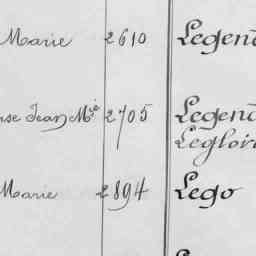 Marie 2610 Legen
Jean Mie 2705 Legen
Leglor
Marie 2894 Lego